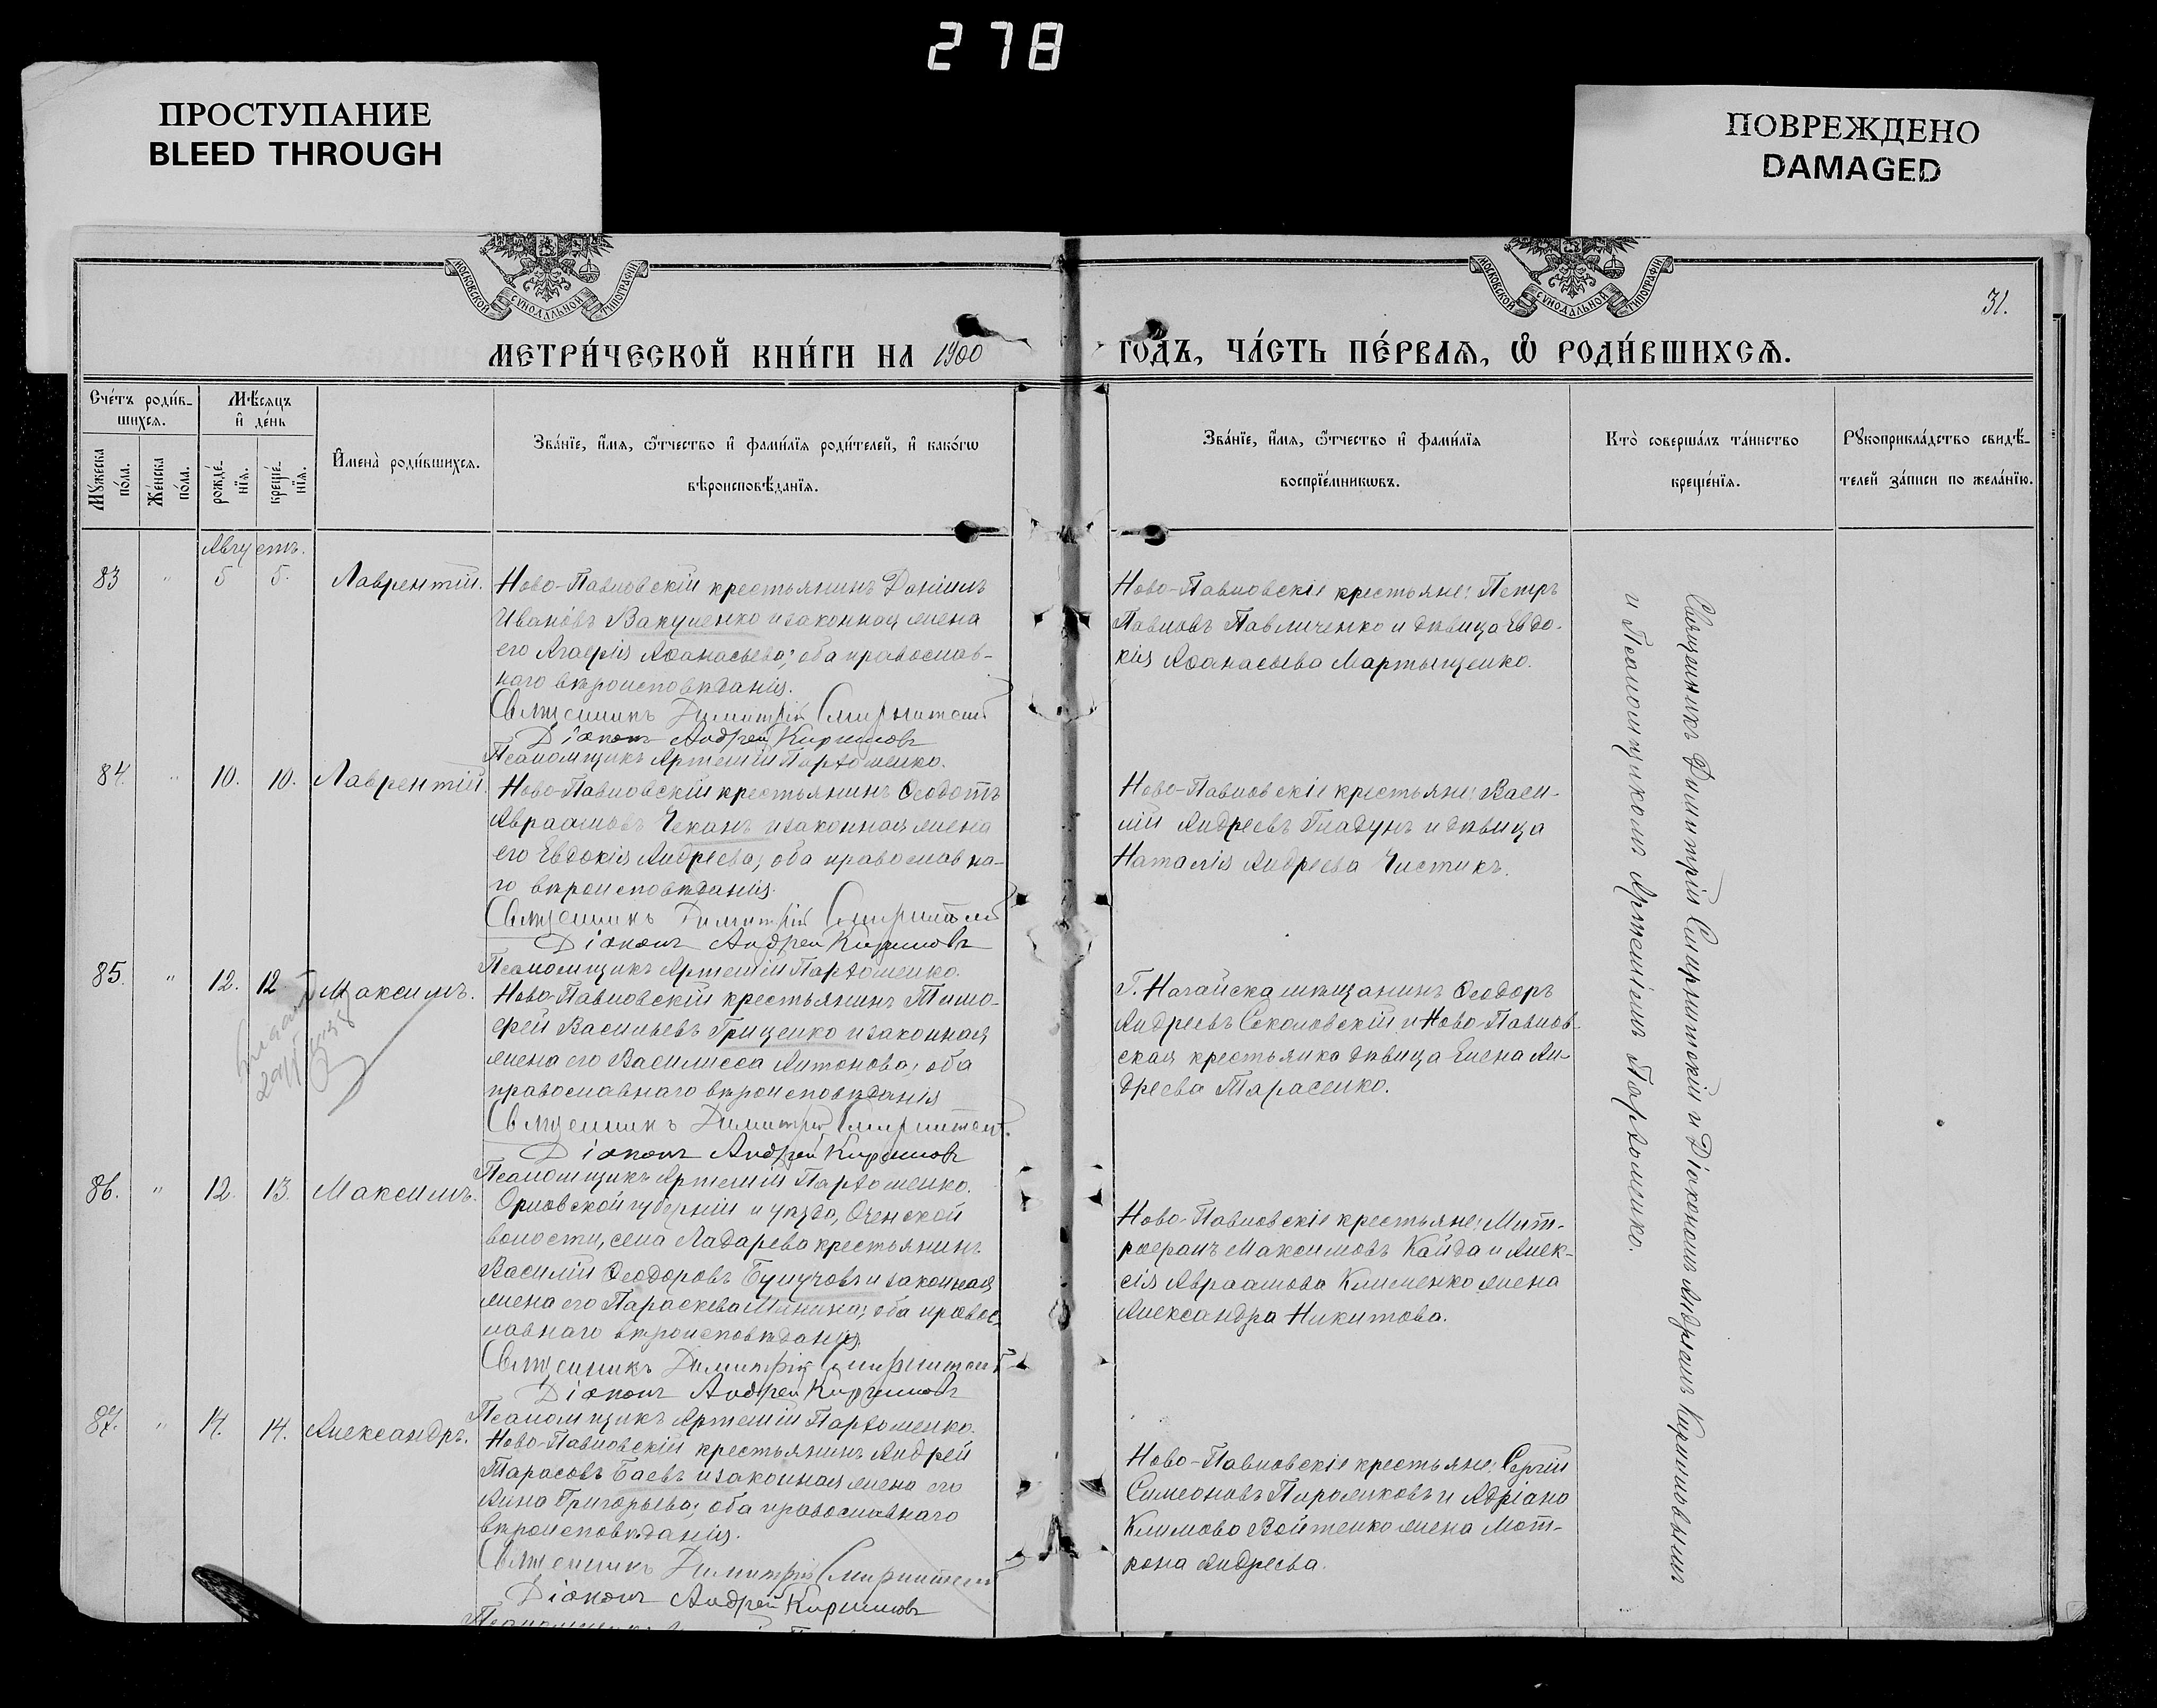 278
ПРОСТУПАНИЕ
BLEED THROUGH
ПОВРЕЖДЕНО
DAMAGED
МОСКОВСКОЙ СѴНОДАЛЬНОЙ ТИПОГРАФІИ
МОСКОВСКОЙ СѴНОДАЛЬНОЙ ТИПОГРАФІИ
31.
МЕТРИ́ЧЕСКОЙ КНИ́ГИ НА 1900
ГО́ДЪ, ЧА́СТЬ ПЕ́РВАѦ, Ѽ РОДИ́ВШИХСѦ.
Сче́тъ роди́в-
шихсѧ.
Мꙋ́жеска по́ла.
Же́нска по́ла.
Мѣ́сѧцъ
и҆ де́нь
рожде́-
нїѧ.
креще́-
нїѧ.
И҆мена̀ роди́вшихсѧ.
Зва́нїе, и҆́мѧ, ѻ҆́тчество и҆ фами́лїѧ роди́телей, и҆ како́гѡ
вѣроисповѣ́данїѧ.
Зва́нїе, и҆́мѧ, ѻ҆́тчество и҆ фами́лїѧ
воспрїе́мникѡвъ.
Кто̀ соверша́лъ та́инство
креще́нїѧ.
Рꙋкоприкла́дство свидѣ́-
телей за́писи по жела́нїю.
Августъ.
83 " 5 5. Лаврентій.
Ново-Павловскій крестьянинъ Даніилъ
Ивановъ Вакуленко и законная жена
его Агафія Аѳанасьева; оба православ-
наго вѣроисповѣданія.
Священникъ Димитрій
Діаконъ Андрей Кирилловъ
Псаломщикъ Артемій Пархоменко.
Ново-Павловскіе крестьяне: Петръ
Павловъ Павличенко и дѣвица Евдо-
кія Аѳанасьева Мартыщенко.
84. " 10. 10. Лаврентій.
Ново-Павловскій крестьянинъ Ѳеодотъ
Авраамовъ Чеканъ и законная жена
его Евдокія Андреева; оба православна-
го вѣроисповѣданія.
Священникъ Димитрій
Діаконъ Андрей Кирилловъ
Псаломщикъ Артемій Пархоменко.
Ново-Павловскіе крестьяне: Васи-
лій Андреевъ Гладунъ и дѣвица
Наталія Андреева Чистикъ.
85. " 12. 12 Максимъ.
Ново-Павловскій крестьянинъ Тимо-
фей Васильевъ Гриценко и законная
жена его Василисса Антонова; оба
православнаго вѣроисповѣданія
Священникъ Димитрій
Діаконъ Андрей Кирилловъ
Псаломщикъ Артемій Пархоменко.
Г. Ногайска мѣщанинъ Ѳеодоръ
Андреевъ Соколовскій и Ново-Павлов-
ская крестьянка дѣвица Елена Ан-
дреева Тарасенко.
86. " 12. 13. Максимъ.
Орловской губерніи и уѣзда,
волости, села Лабарева крестьянинъ
Василій Ѳеодоровъ и законная
жена его Параскева Минина; оба правос-
лавнаго вѣроисповѣданія.
Священникъ Димитрій
Діаконъ Андрей Кирилловъ
Псаломщикъ Артемій Пархоменко.
Ново-Павловскіе крестьяне: Мит-
рофанъ Максимовъ Кайда и Алек-
сія Авраамова Клименко жена
Александра Никитова.
87. " 14. 14. Александръ.
Ново-Павловскій крестьянинъ Андрей
Тарасовъ Баевъ и законная жена его
Анна Григорьева; оба православнаго
вѣроисповѣданія.
Священникъ Димитрій
Діаконъ Андрей Кирилловъ
Ново-Павловскіе крестьяне: Сергій
Симеоновъ Пирожковъ и Адріана
Климова Войтенко жена Мот-
рона Андреева.
Священникъ Димитрій и Діакономъ Андреемъ Кирилловымъ
и Псаломщикомъ Артеміемъ Пархоменко.